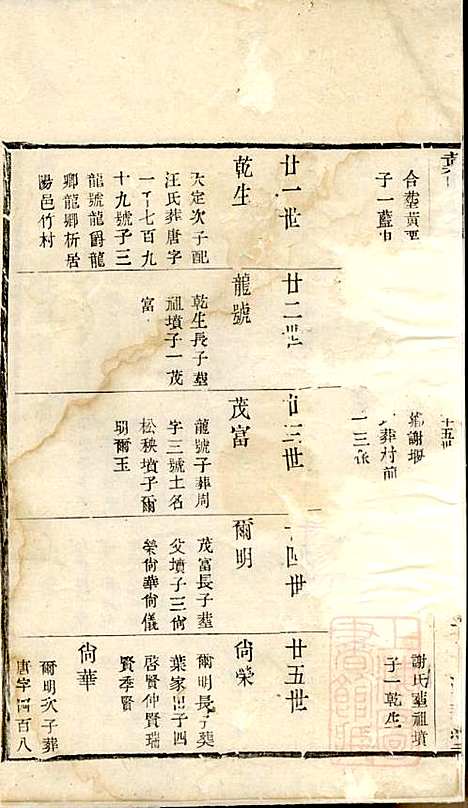 合塟黃
子一藍
謝堨
葬村前
一三
謝氏塟祖墳
子一乾生
廿一世
乾生
大定次子配
汪氏葬唐字
一千七百九
十九號子三
龍號龍爵龍
卿龍卿析居
陽邑竹村
廿二世
龍號
乾生長子塟
祖墳子一茂
富
三世
茂富
龍號子葬周
字三號土名
松秧墳子爾
明爾玉
四世
爾明
茂富長子塟
父墳子三尙
榮尙華尙儀
廿五世
尙榮
爾明長子葬
葉家 子四
啓賢仲賢瑞
賢季賢
尙華
爾明次子葬
唐字四百八